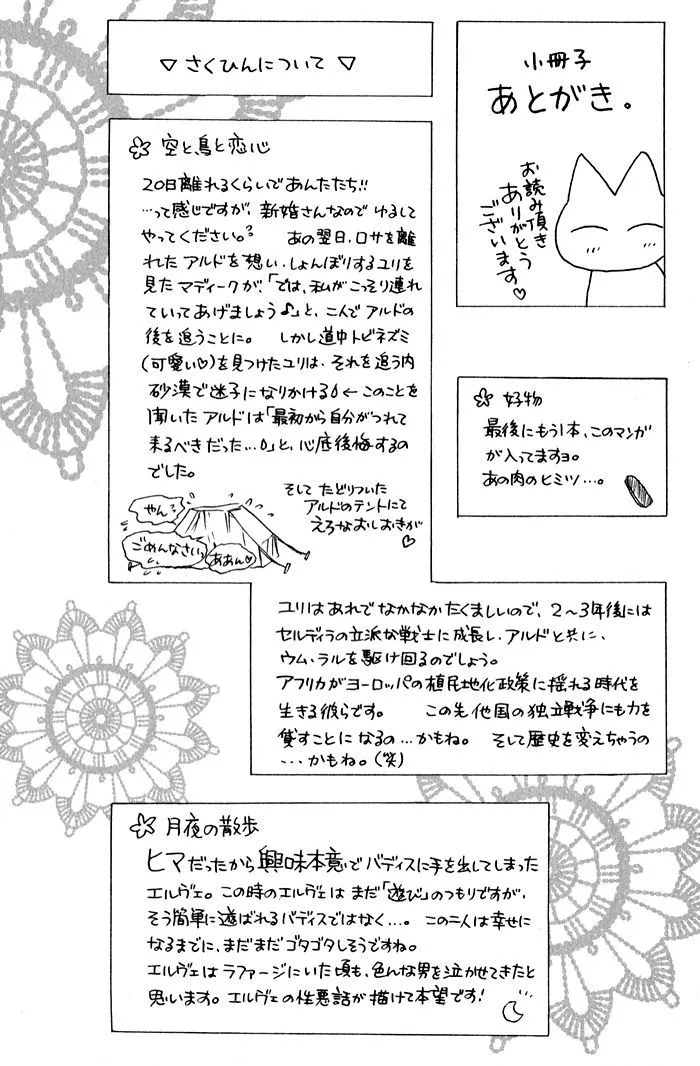 小冊子
あとがき。
お読み頂き
ありがとう
ございます♡
▽ さくひんについて ▽
✿ 空と鳥と恋心
20日離れるくらいであんたたち!!
…って感じですが、新婚さんなので ゆるして
やってください。 あの翌日、ロサを離
れた アルドを想い、しょんぼりするユリを
見た マディークが、「では、私がこっそり連れ
ていってあげましょう♪」と、二人で アルドの
後を追うことに。 しかし道中トビネズミ
(可愛い♡)を見つけたユリは、それを追う内
砂漠で迷子になりかける ← このことを
聞いた アルドは「最初から自分がつれて
来るべきだった…」と、心底後悔するの
でした。
そして たどりついた
アルドのテントにて
えろなおしおきが
♡
やん?
ごめんなさいっ
ああん♡
ユリはあれで なかなかたくましいので、2〜3年後には
セルディラの立派な戦士に成長し、アルドと共に、
ウム・ラルを駆け回るのでしょう。
アフリカがヨーロッパの植民地化政策に揺れる時代を
生きる彼らです。 この先他国の独立戦争にも力を
貸すことになるの…かもね。 そして歴史を変えちゃうの
…かもね。(笑)
✿ 好物
最後にもう1本、このマンガ
が入ってますョ。
あの肉のヒミツ…。
✿ 月夜の散歩
ヒマだったから興味本意でバディスに手を出してしまった
エルヴェ。この時のエルヴェは まだ「遊び」のつもりですが、
そう簡単に遊ばれるバディスではなく…。 この二人は幸せに
なるまでに、まだまだゴタゴタしそうですね。
エルヴェはラファージにいた頃も、色んな男を泣かせてきたと
思います。エルヴェの性悪話が描けて本望です!